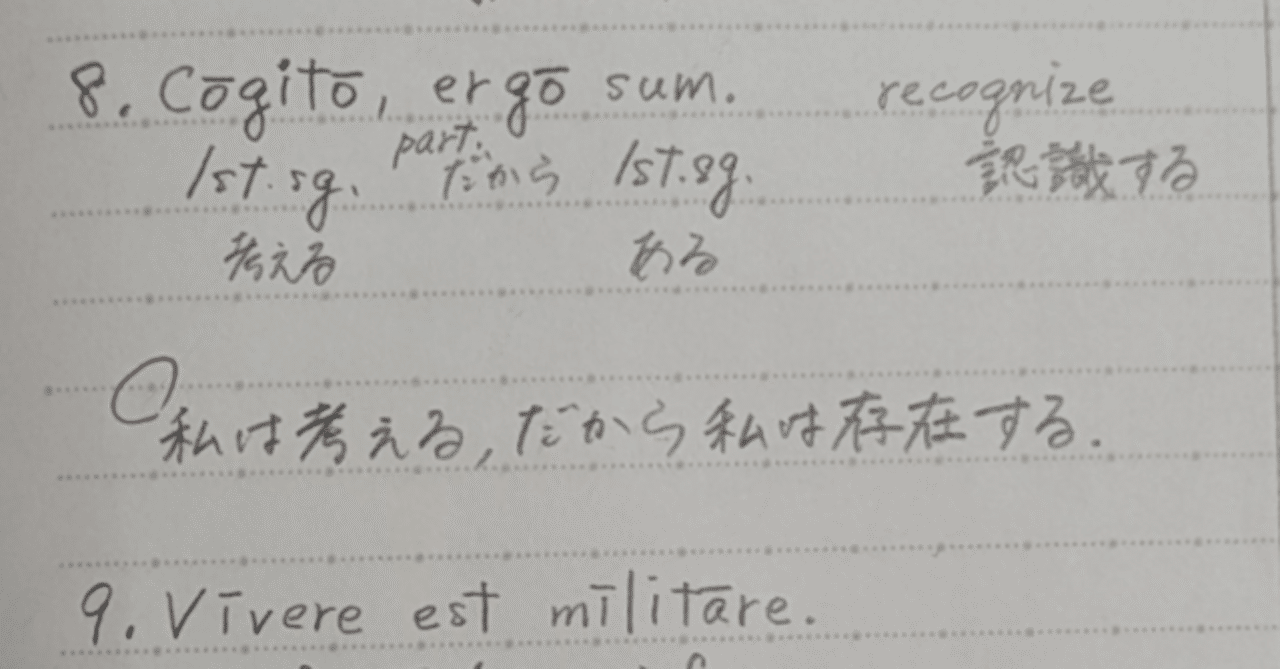 8. Cōgitō, ergō sum. recognize
1st.sg. part. だから 1st.sg. 認識する
考える ある
私は考える,だから私は存在する.
9. Vīvere est mīlitāre.